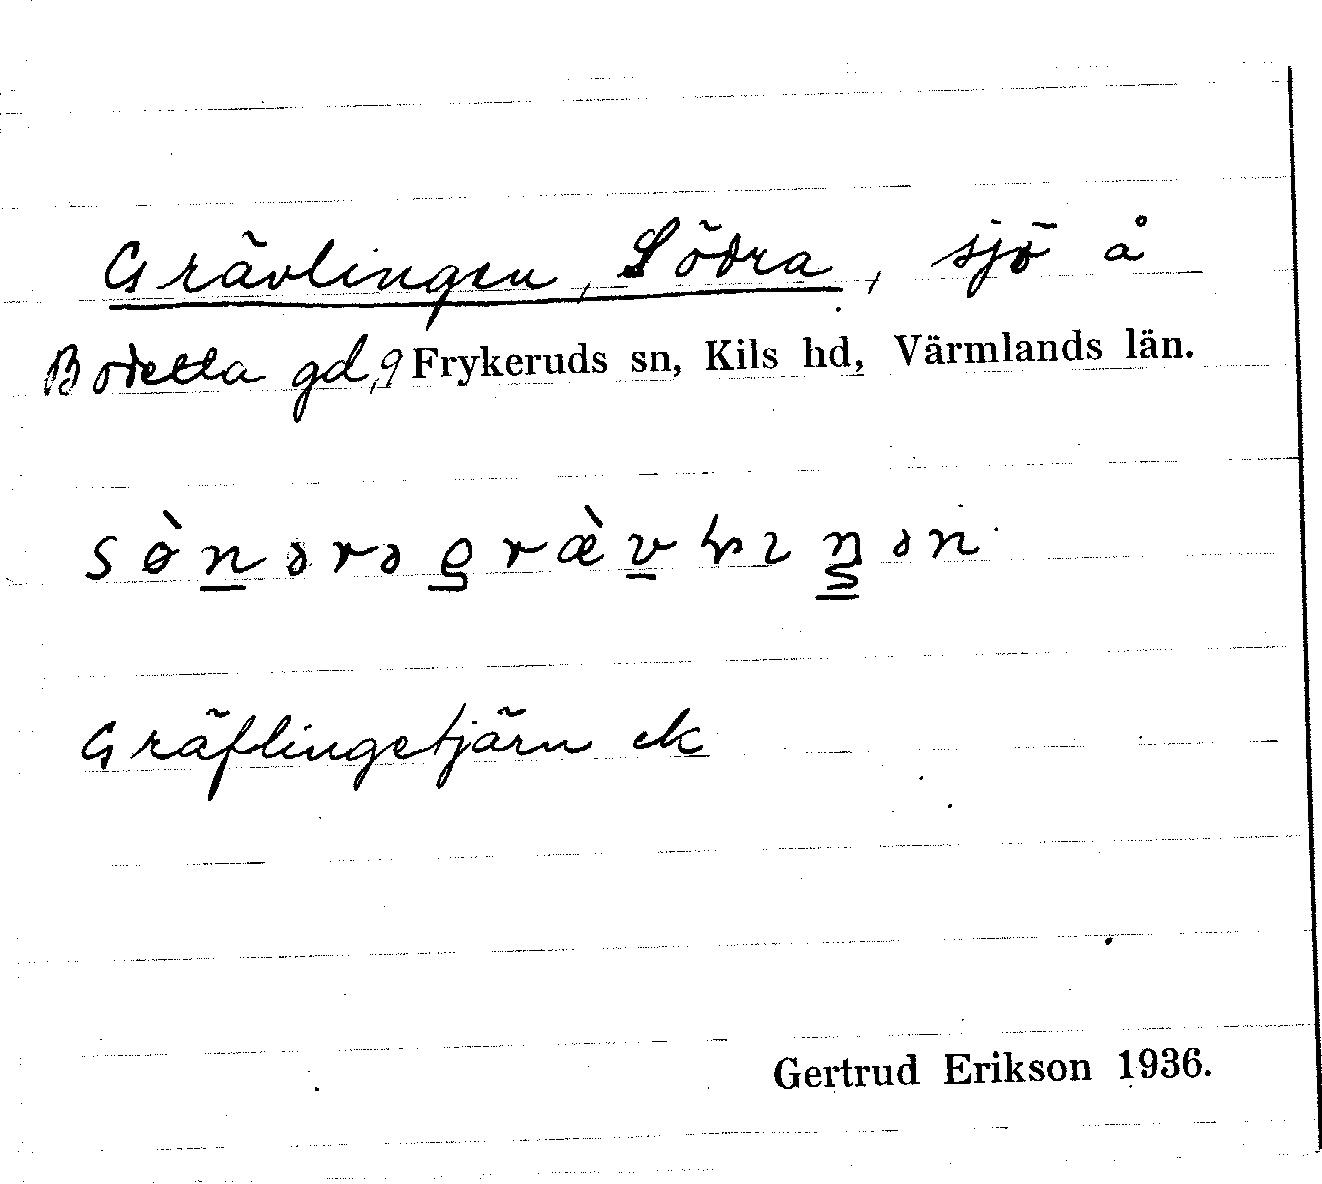 Grävlingen, Södra, sjö å
Bodetta gd, Frykeruds sn, Kils hd, Värmlands län.
sø̀nərəgræ̀vlɩŋən
Gräflingetjärn ek
Gertrud Erikson 1936.